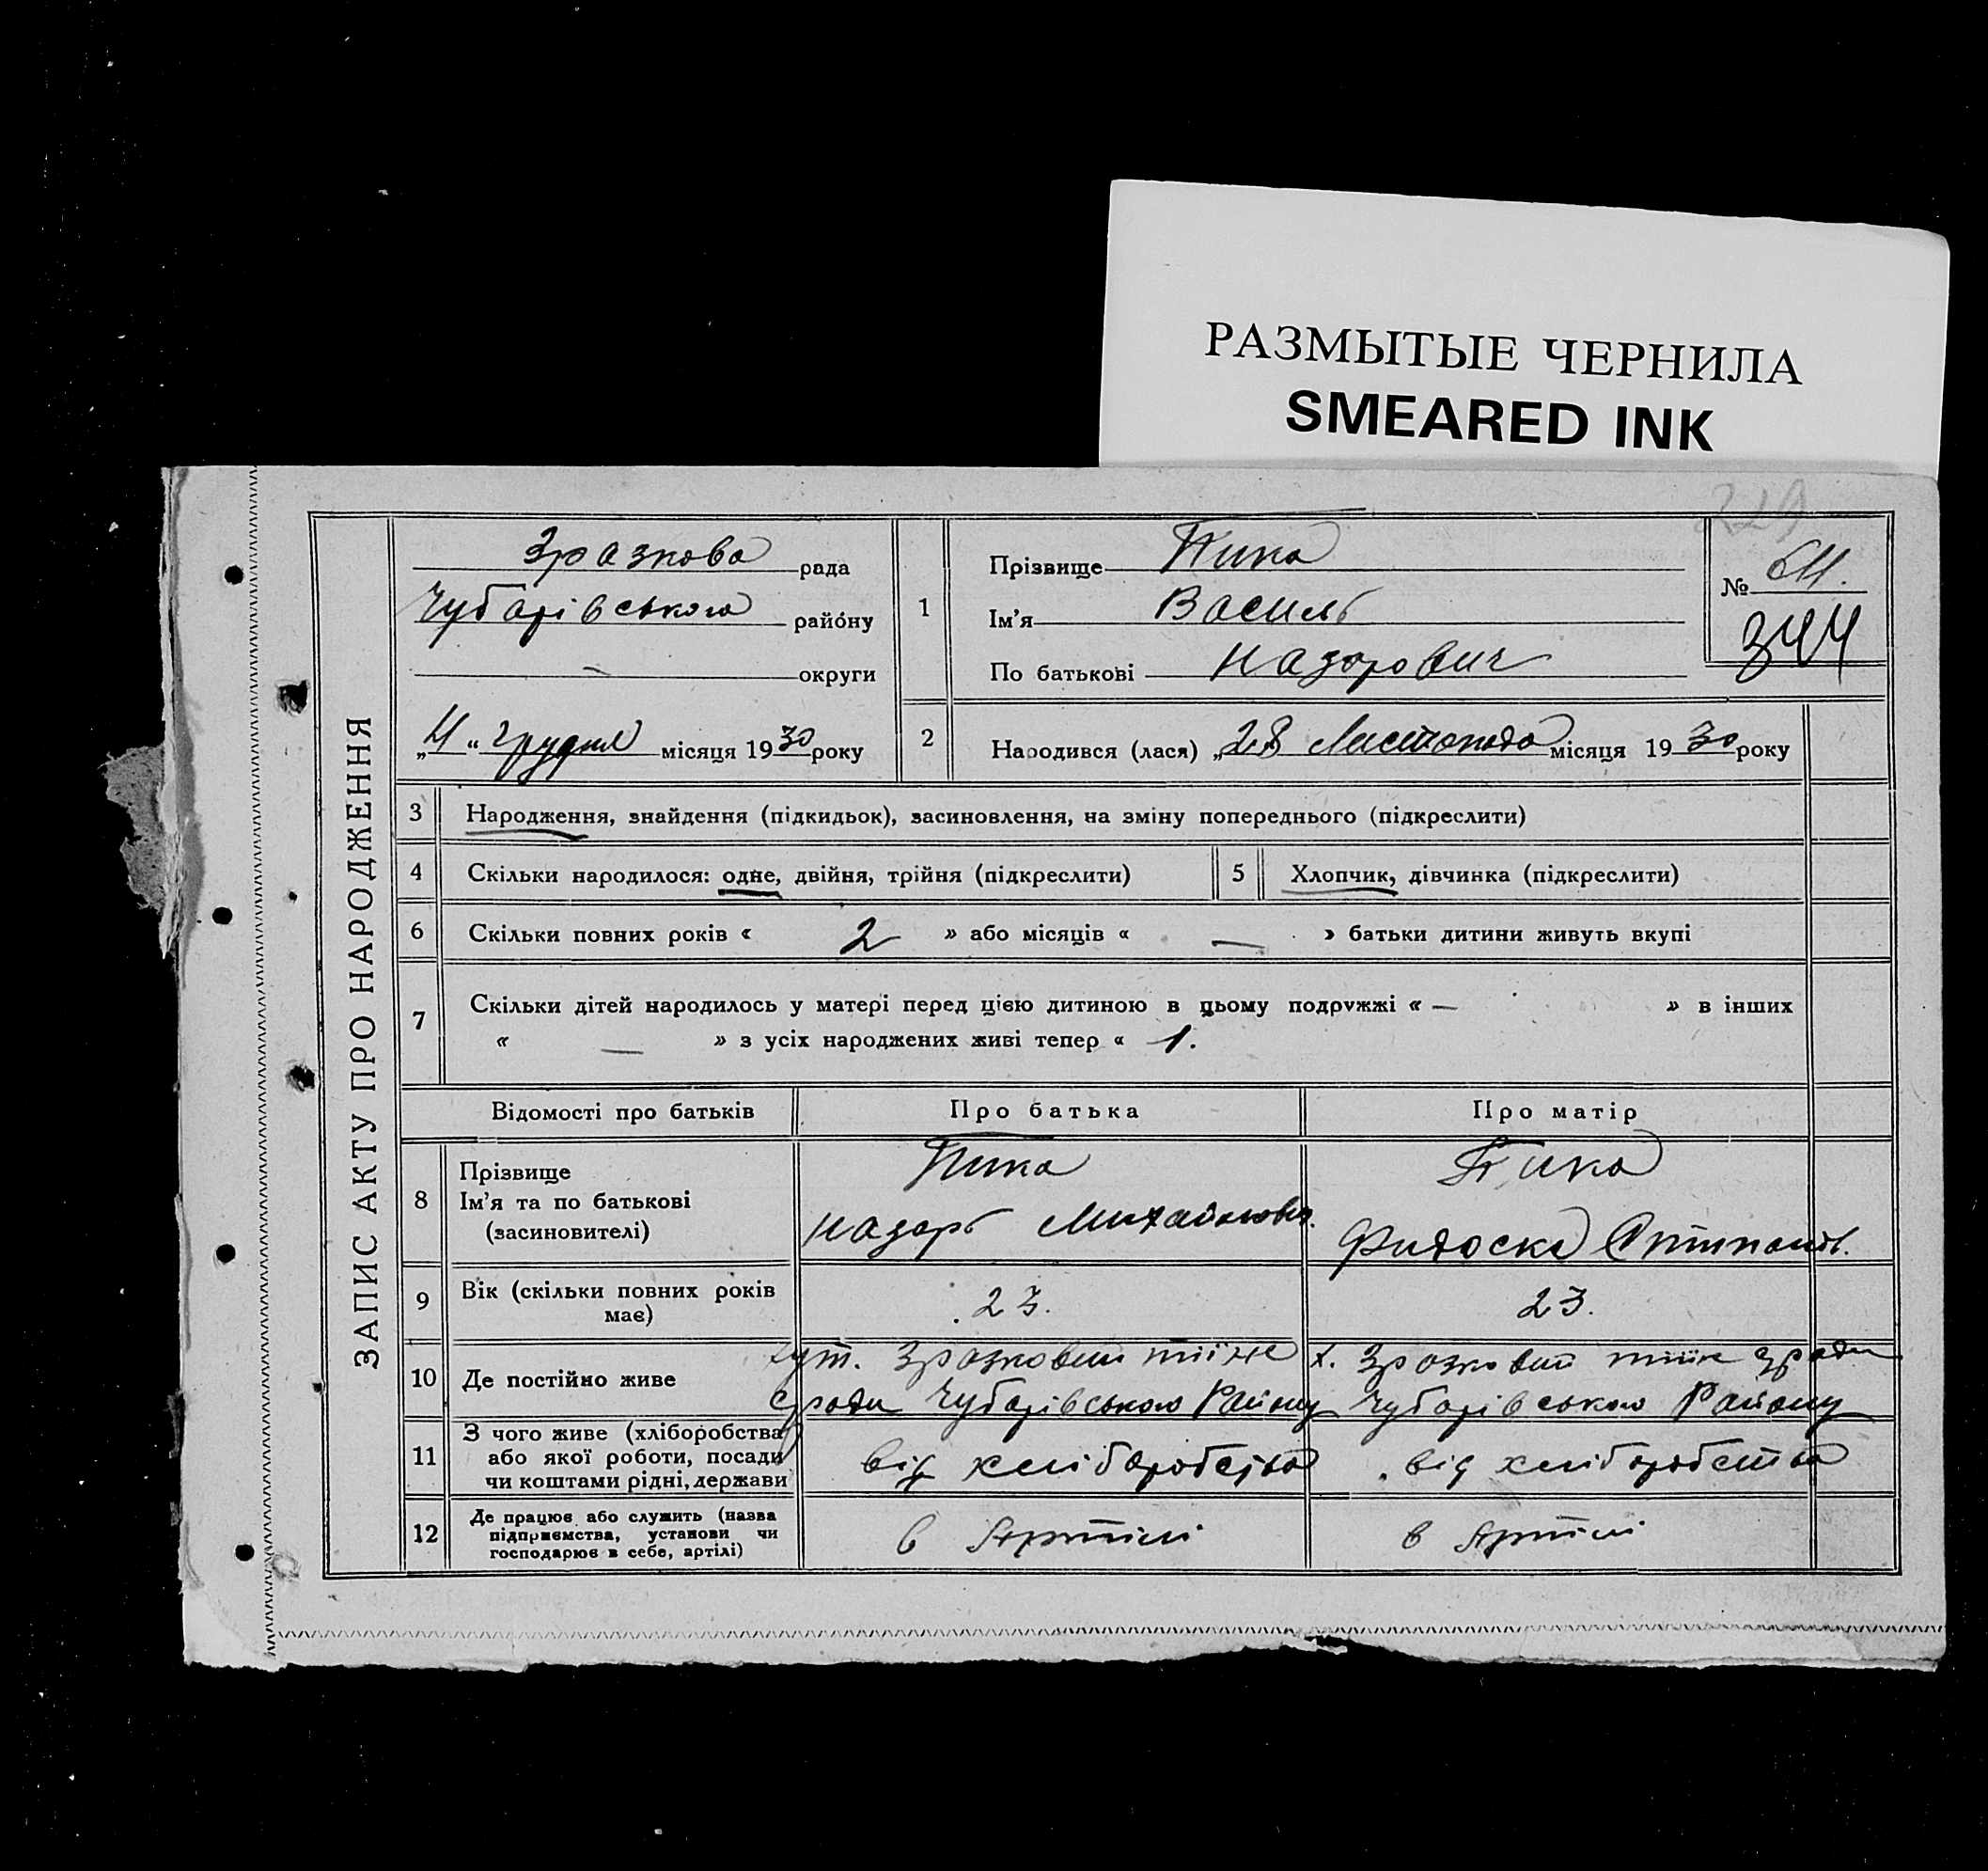 РАЗМЫТЫЕ ЧЕРНИЛА
SMEARED INK
ЗАПИС АКТУ ПРО НАРОДЖЕННЯ
Зразкова рада
Чубарівського району
— округи
„ “ грудня місяця 1930 року
1
Прізвище Пика
Ім'я Василь
По батькові Назарович
№
344
2
Народився (лася) „28 Листопада місяця 1930 року
3 Народження, знайдення (підкидьок), засиновлення, на зміну попереднього (підкреслити)
4 Скільки народилося: одне, двійня, трійня (підкреслити)
5 Хлопчик, дівчинка (підкреслити)
6 Скільки повних років « 2 » або місяців « — » батьки дитини живуть вкупі
7 Скільки дітей народилось у матері перед цією дитиною в цьому подружжі « — » в інших
« — » з усіх народжених живі тепер « 1.
Відомості про батьків
Про батька
Про матір
8
Прізвище
Ім'я та по батькові
(засиновителі)
Пика
Назарь Михайлович.
Пика
Фидоска
9
Вік (скільки повних років
має)
23.
23.
10 Де постійно живе
хут. Зразковий тіїже
с/ради Чубарівського Району
х. Зразковий тіїж с/ради
Чубарівського Району
11
З чого живе (хліборобства
або якої роботи, посади
чи коштами рідні, держави
від хліборобства
від хліборобства
12
Де працює або служить (назва
підприємства, установи чи
господарює в себе, артілі)
в Артілі
в Артілі